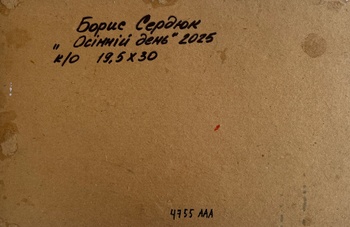 Борис Сердюк
„Осінній день" 2025
к/о 19,5 х 30
4755 AAA